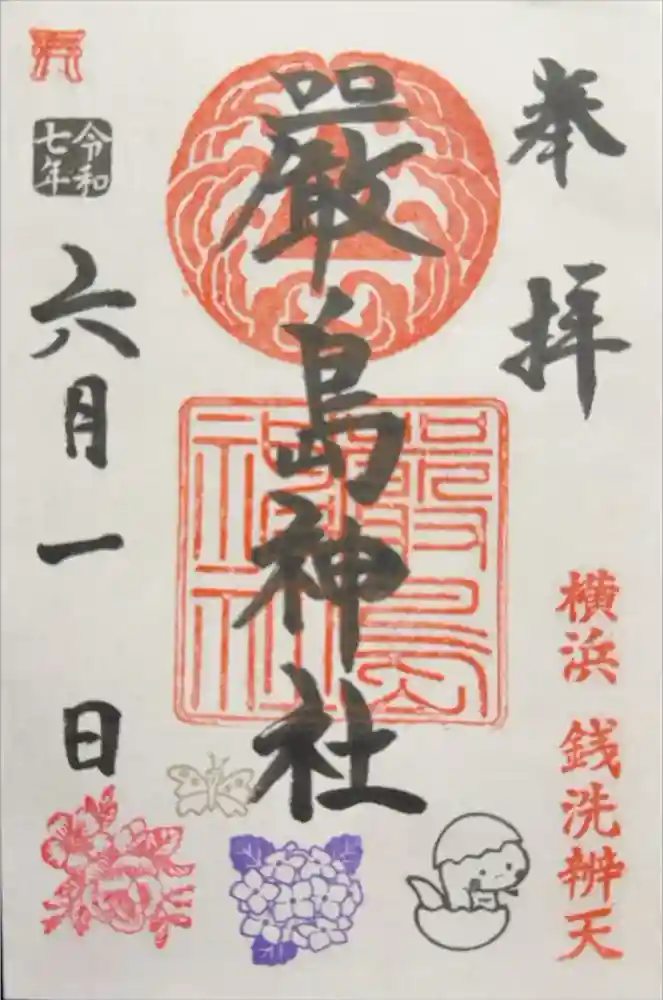 奉拝
横浜 銭洗辨天
厳島神社
嚴島
神社
令和
七年
六月一日